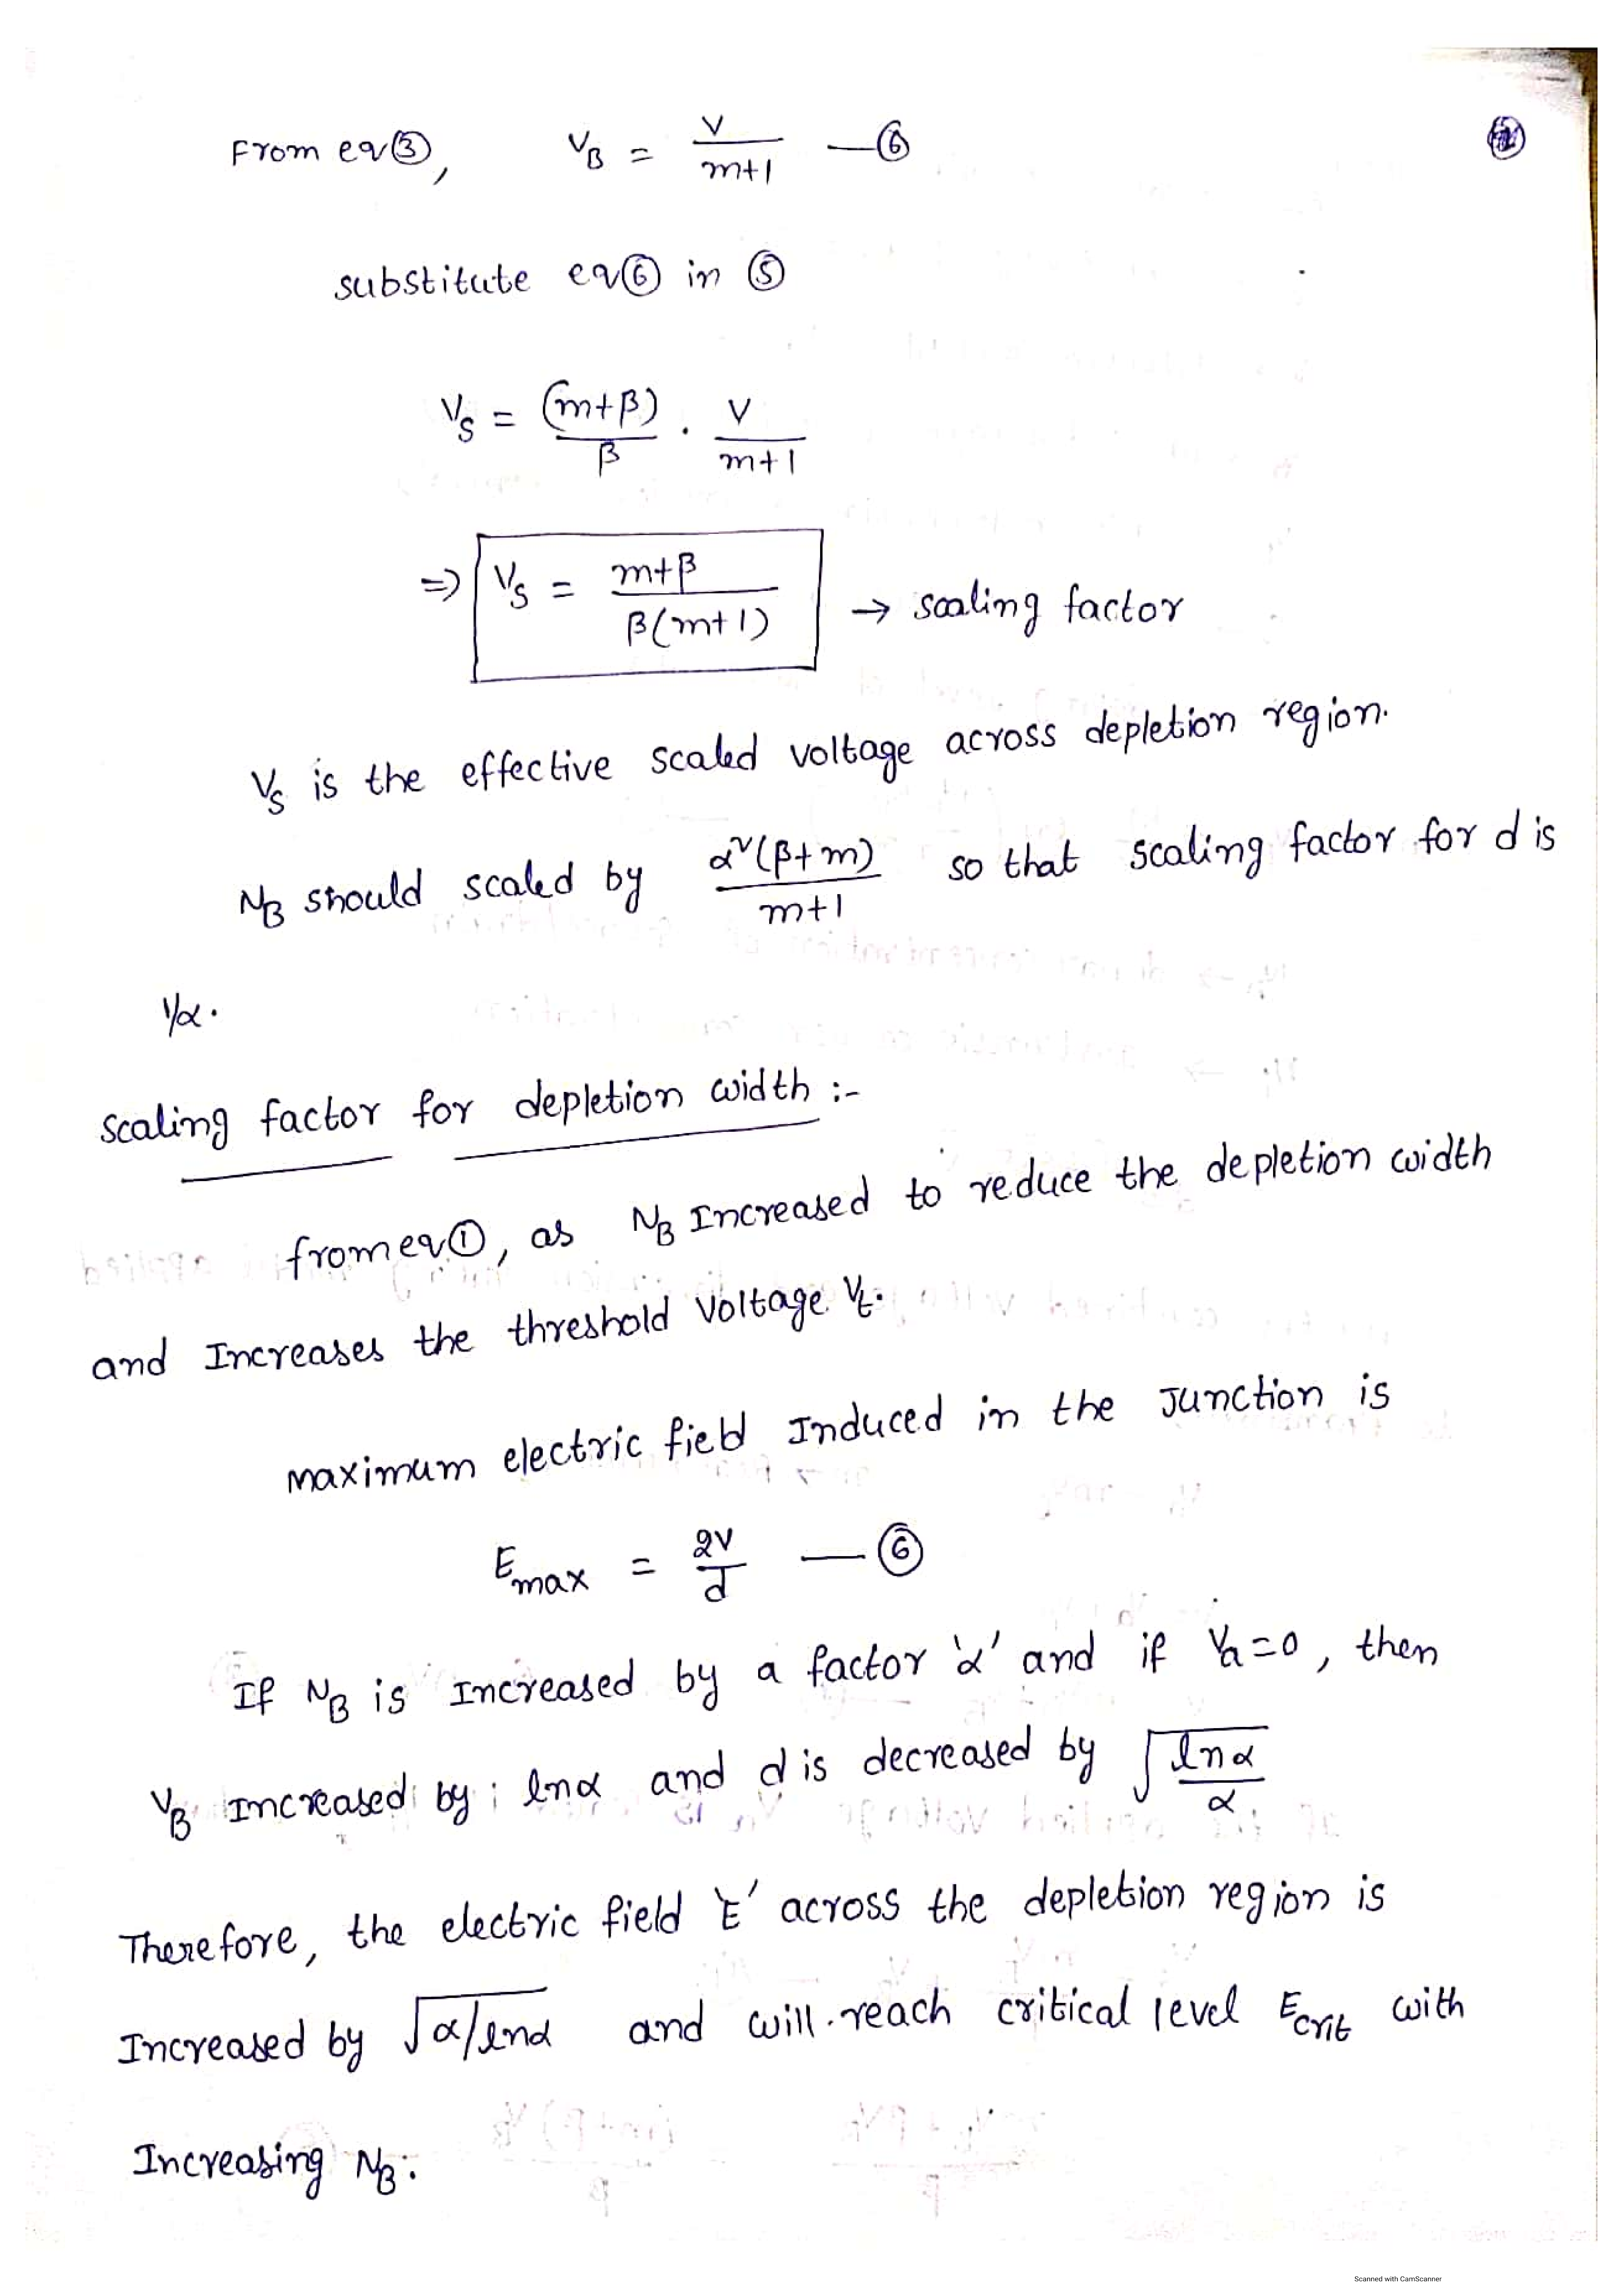 From eq③, V_B = V/(m+1) —⑥
substitute eq⑥ in ⑤
V_S = (m+β)/β · V/(m+1)
⇒ V_S = (m+β)/(β(m+1)) → scaling factor
V_S is the effective scaled voltage across depletion region.
N_B should scaled by α²(β+m)/(m+1) so that scaling factor for d is
1/α.
Scaling factor for depletion width :-
from eq①, as N_B Increased to reduce the depletion width
and Increases the threshold Voltage V_t.
maximum electric field Induced in the Junction is
E_max = 2V/d —⑥
If N_B is Increased by a factor 'α' and if V_a=0, then
V_B Increased by lnα and d is decreased by √(lnα/α)
Therefore, the electric field 'E' across the depletion region is
Increased by √(α/lnα) and will reach critical level E_crit with
Increasing N_B.
Scanned with CamScanner